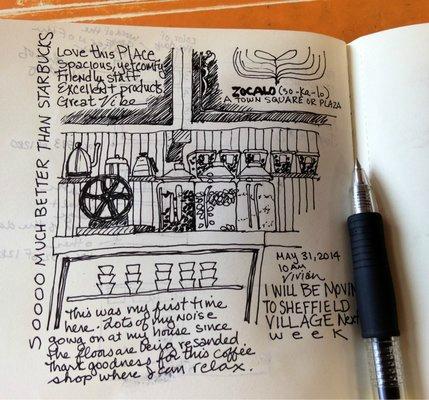 50000 MUCH BETTER THAN STARBUCKS
Love this PlACE
Spacious, yet comfy
Friendly staff,
Excellent products
Great Vibe
ZOCALO (so-ka-lo)
A TOWN SQUARE OR PLAZA
MAY 31, 2014
10 AM
Vivian
I WILL BE MOVING
TO SHEFFIELD
VILLAGE Next
week
This was my first time
here. Lots of my NOISE
going on at my house since
the floors are being resanded.
Thank goodness for this coffee
shop where I can relax.